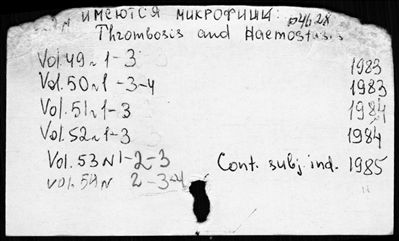 ИМЕЮТСЯ МИКРОФИШИ:
Thrombosis and Haemostasis
Vol. 49 N 1-3 1983
Vol. 50 N 1-3-4 1983
Vol. 51 N 1-3 1984
Vol. 52 N 1-3 1984
Vol. 53 N 1-2-3 Cont. subj. ind. 1985
Vol. 54 N 2-3-4